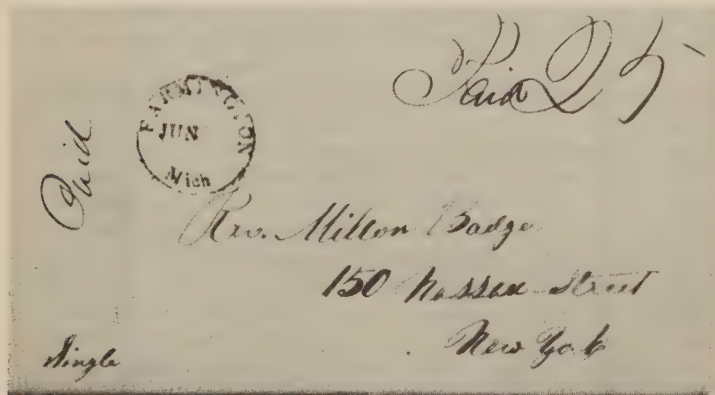 Paid 25
FARMINGTON
JUN
Mich
Paid
Rev. Milton Badge
150 Nassau Street
New York
Single